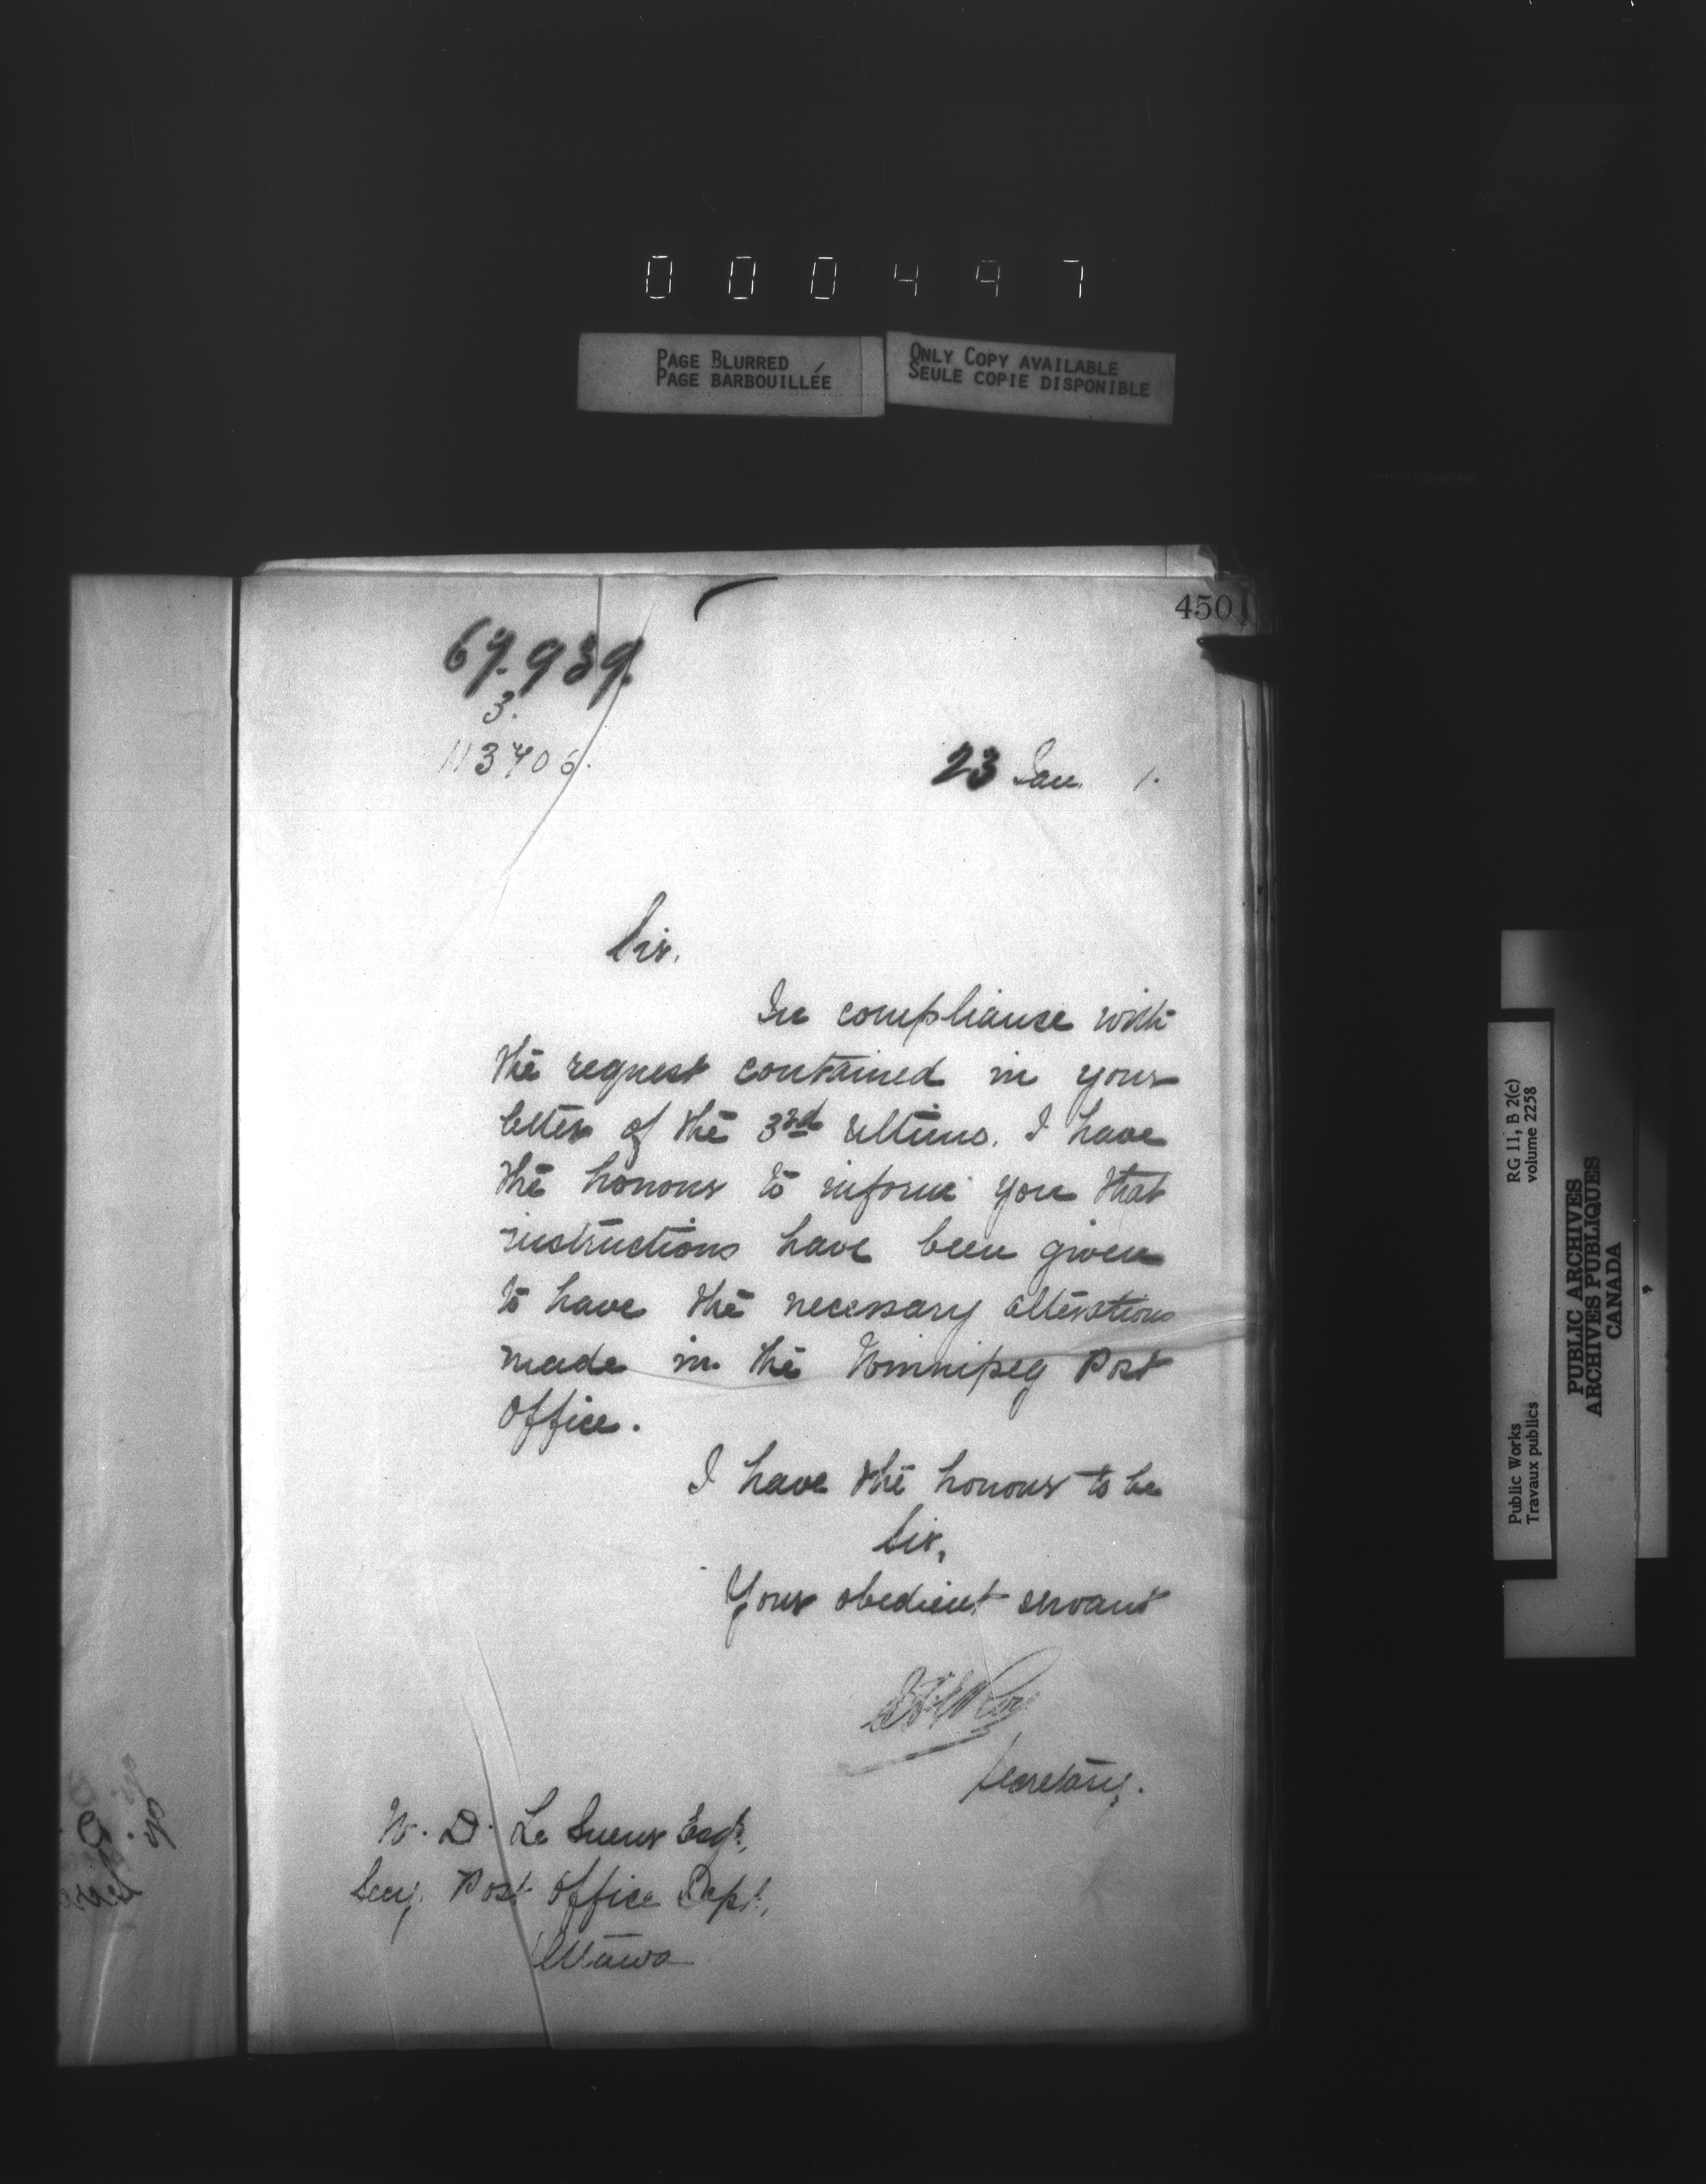 000497
PAGE BLURRED
PAGE BARBOUILLÉE
ONLY COPY AVAILABLE
SEULE COPIE DISPONIBLE
450
69.939.
3.
113706.
23 Jan. 1.
Sir,
In compliance with
the request contained in your
letter of the 3rd ultimo, I have
the honour to inform you that
instructions have been given
to have the necessary alterations
made in the Winnipeg Post
Office.
I have the honour to be
Sir,
Your obedient servant
Secretary.
W. D. Le Sueur Esqr.,
Secy. Post Office Dept.,
Ottawa
RG 11, B 2(c)
volume 2258
Public Works
Travaux publics
PUBLIC ARCHIVES
ARCHIVES PUBLIQUES
CANADA